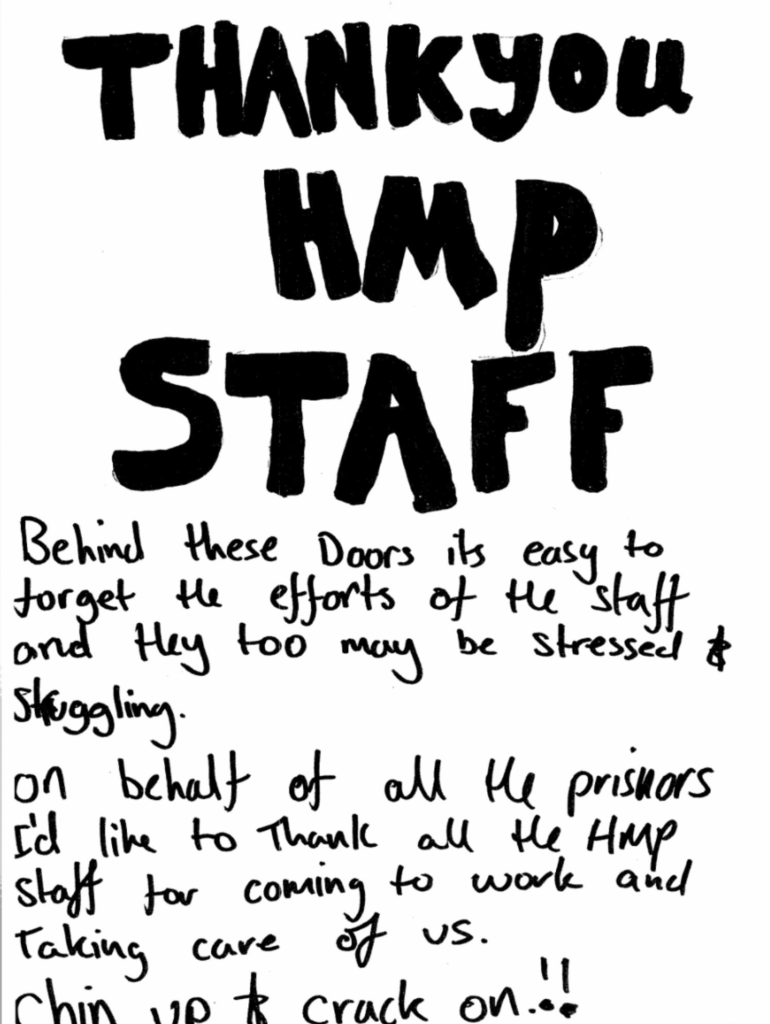 THANKyou
HMP
STAFF
Behind these Doors its easy to
forget the efforts of the staff
and they too may be stressed &
struggling.
on behalf of all the prisnors
I'd like to Thank all the HMP
staff for coming to work and
Taking care of us.
Chin up & crack on.!!